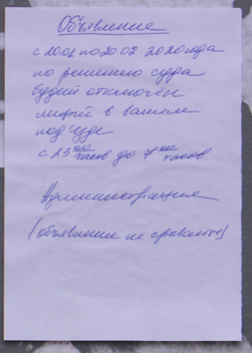 Объявление
с 20.01 по 20.02 2020 года
по решению суда
будут отключены
лифты в вашем
подъезде
с 23 00 часов до 7 00 часов
Администрация
(объявление не срывать)